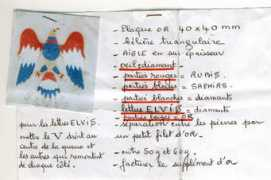 - Plaque OR 40 x 40 mm
- Bélière triangulaire
- AiGLE en sur épaisseur
oeil: diamant
- parties rouges = RUBiS.
- parties bleues = SAPHiRS.
- parties blanches = diamants
- lettres ELViS = diamants
- parties noires = OR
- séparation entre les pierres par
un petit filet d'OR.
- entre 50 g et 60 g.
- facturer le supplément d'or
pour les lettres ELViS
mettre le V droit au
centre de la queue et
les autres qui remontent
de chaque côté.